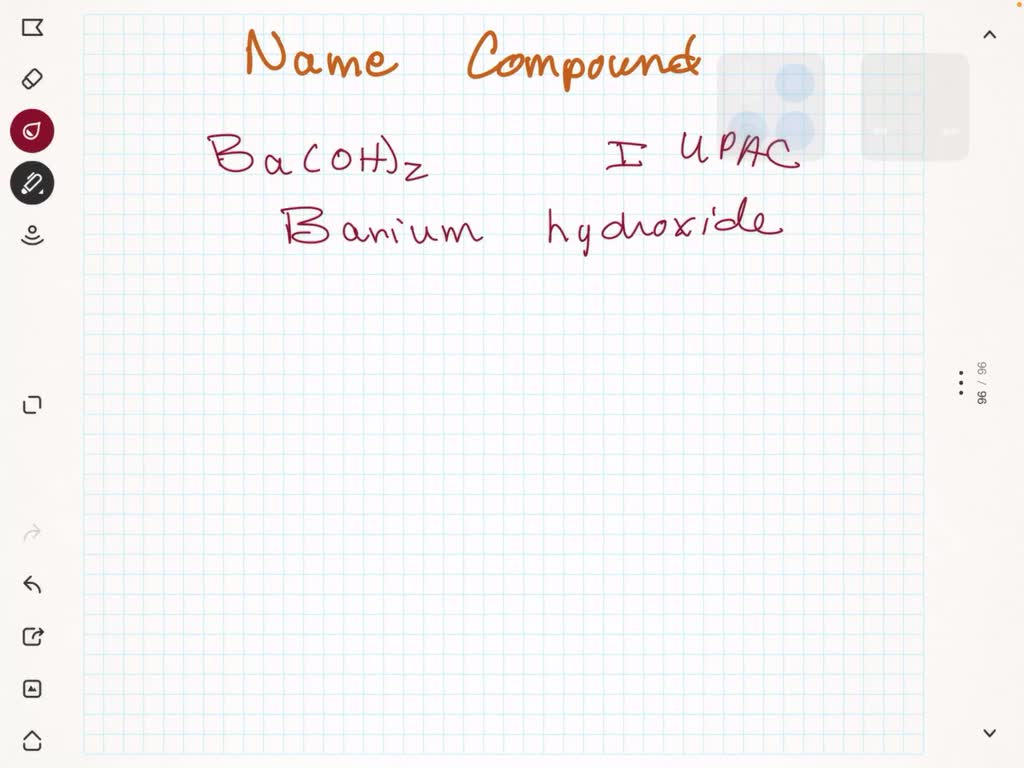 Name Compound
Ba(OH)2 IUPAC
Barium hydroxide
96 / 96